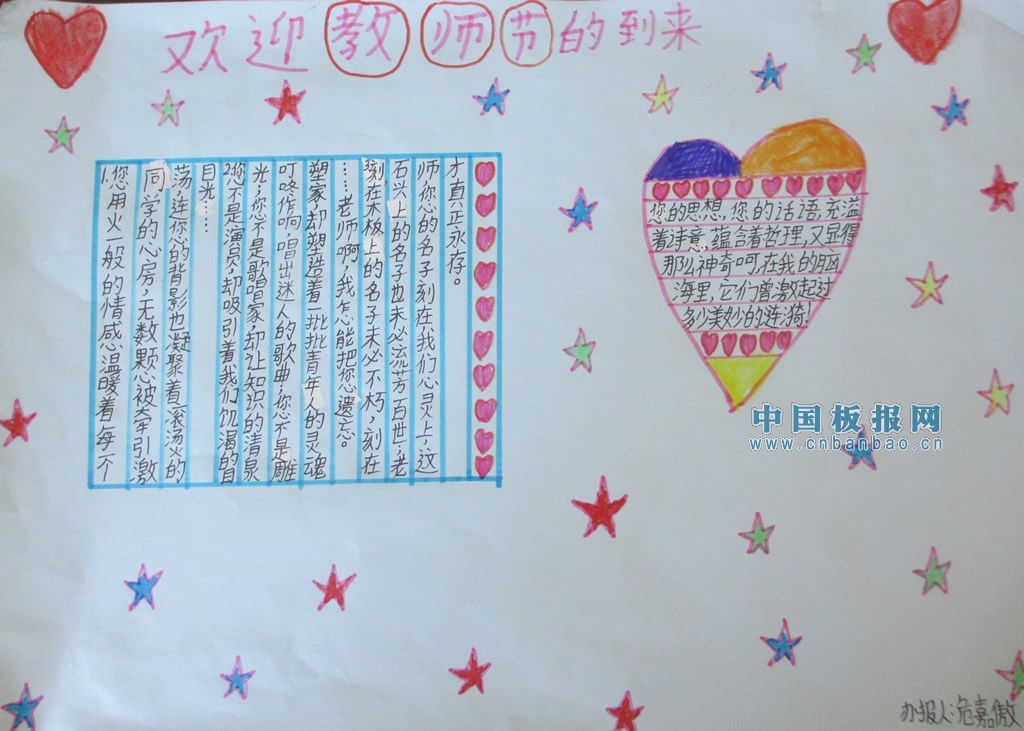 欢迎教师节的到来
1.您用火一般的情感温暖着每个
同学的心房,无数颗心被牵引激
荡,连您的背影也凝聚着滚汤火的
目光……
2您不是演员,却吸引着我们饥渴的目
光;您不是歌唱家,却让知识的清泉
叮咚作响,唱出迷人的歌曲;您不是雕
塑家,却塑造着一批批青年人的灵魂
……老师啊,我怎能把您遗忘。
3刻在木板上的名子未必不朽,刻在
石头上的名子也未必流芳百世;老
师,您的名子刻在我们心灵上,这
才真正永存。
您的思想,您的话语,充溢
着诗意,蕴含着哲理,又显得
那么神奇呵,在我的脑
海里,它们曾激起过
多少美妙的涟漪!
中国板报网
www.cnbanbao.cn
办报人:危嘉傲